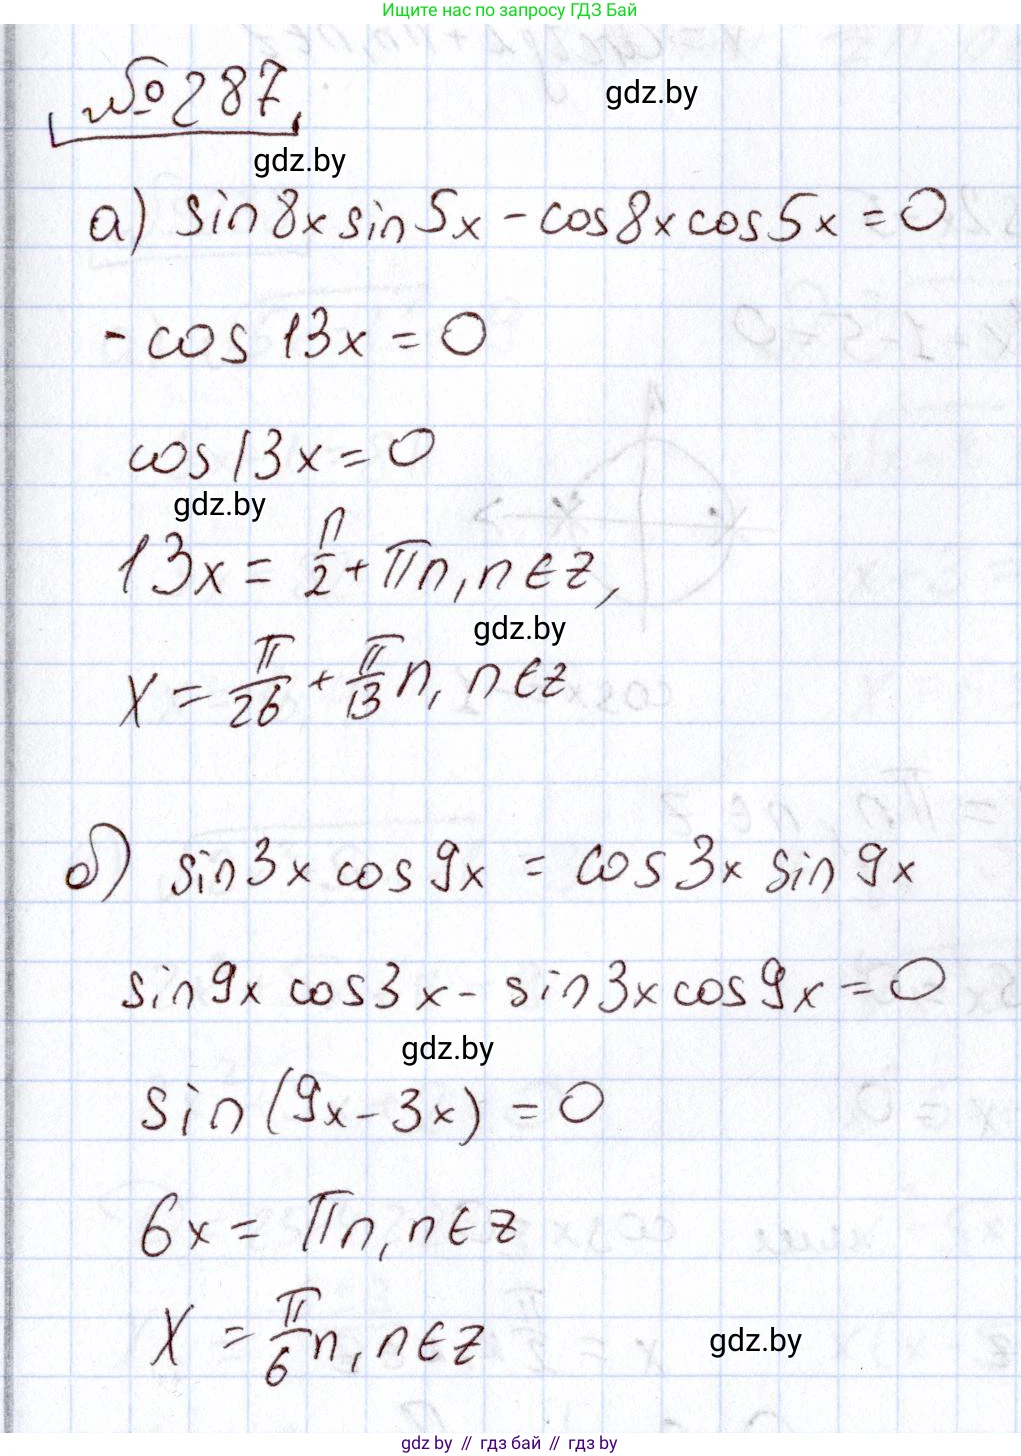 Ищите нас по запросу ГДЗ Бай
№287
gdz.by
gdz.by
а) sin8x sin5x - cos8x cos5x = 0
- cos 13x = 0
cos 13x = 0
gdz.by
13x = π/2 + πn, n ∈ Z,
gdz.by
x = π/26 + π/13 n, n ∈ Z
б) sin3x cos9x = cos3x sin9x
sin9x cos3x - sin3x cos9x = 0
gdz.by
sin(9x - 3x) = 0
6x = πn, n ∈ Z
x = π/6 n, n ∈ Z
gdz.by
gdz.by // гдз бай // gdz by